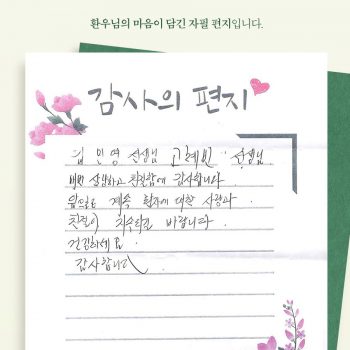 환우님의 마음이 담긴 자필 편지입니다.
감사의 편지
김민영 선생님 고혜빈 선생님
매번 상냥하고 친절함에 감사합니다
앞으로도 계속 환자에 대한 사랑과
친절이 지속되길 바랍니다
건강하세요
감사합니다